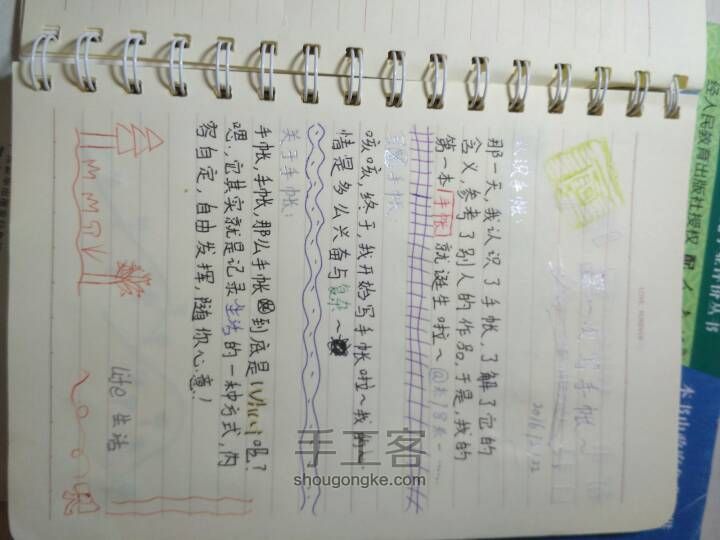 写手帐~
2016/2/22
认识手帐:
那一天,我认识了手帐,了解了它的
含义,参考了别人的作品,于是,我的
第一本手帐就诞生啦~
手帐
咳咳,终于,我开始写手帐啦~我的心
情是多么兴奋与复杂~
关于手帐:
手帐,手帐,那么手帐到底是Why呢?
嗯,它其实就是记录生活的一种方式,内
容自定,自由发挥,随你心意!
Life 生活
手工客
shougongke.com
经人民教育出版社授权 配人